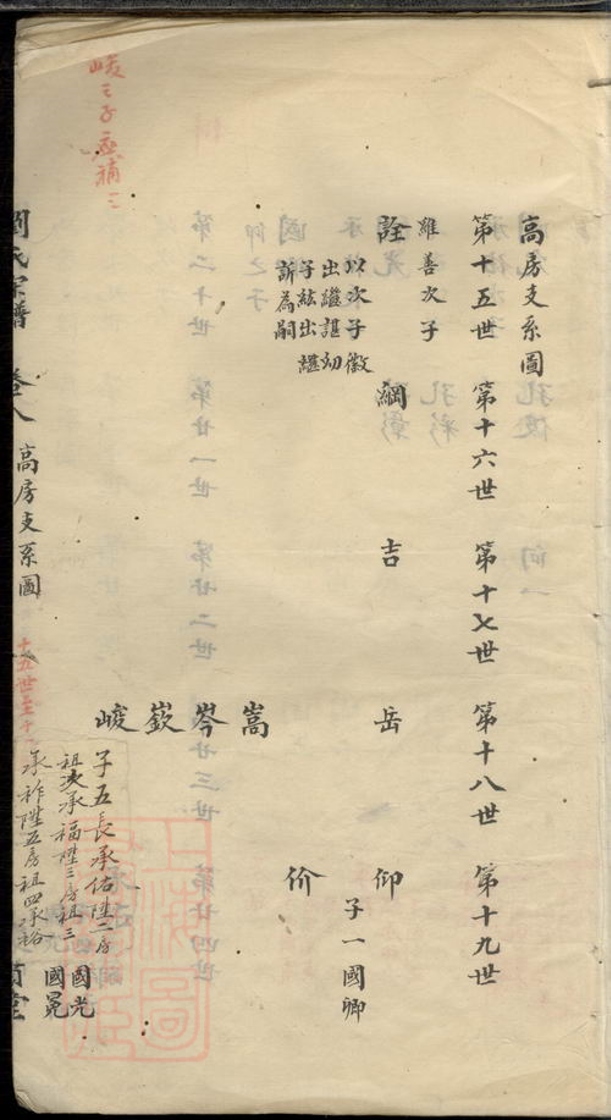 高房支系圖
第十五世 第十六世 第十七世 第十八世 第十九世
雒善次子
詮 綱 吉 岳 仰
以次子徽
出繼諶幼
子紘出諶
訴為嗣
子一國卿
价
嵩
岑
嶔
峻
子五長承佑陞二房
祖次承福陞三房祖三
承祚陞五房祖四承裕
國光
國冕
峻之子應補二
劉氏宗譜 卷八 高房支系圖
十五世至十